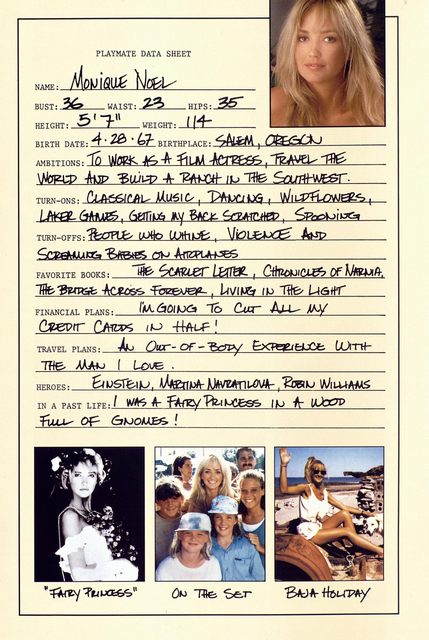 PLAYMATE DATA SHEET
NAME: MONIQUE NOEL
BUST: 36 WAIST: 23 HIPS: 35
HEIGHT: 5'7" WEIGHT: 114
BIRTH DATE: 4·28·67 BIRTHPLACE: SALEM, OREGON
AMBITIONS: TO WORK AS A FILM ACTRESS, TRAVEL THE
WORLD AND BUILD A RANCH IN THE SOUTHWEST.
TURN-ONS: CLASSICAL MUSIC, DANCING, WILDFLOWERS,
LAKER GAMES, GETTING MY BACK SCRATCHED, SPOONING
TURN-OFFS: PEOPLE WHO WHINE, VIOLENCE AND
SCREAMING BABIES ON AIRPLANES
FAVORITE BOOKS: THE SCARLET LETTER, CHRONICLES OF NARNIA,
THE BRIDGE ACROSS FOREVER, LIVING IN THE LIGHT
FINANCIAL PLANS: I'M GOING TO CUT ALL MY
CREDIT CARDS IN HALF!
TRAVEL PLANS: AN OUT-OF-BODY EXPERIENCE WITH
THE MAN I LOVE.
HEROES: EINSTEIN, MARTINA NAVRATILOVA, ROBIN WILLIAMS
IN A PAST LIFE: I WAS A FAIRY PRINCESS IN A WOOD
FULL OF GNOMES!
"FAIRY PRINCESS" ON THE SET BAJA HOLIDAY